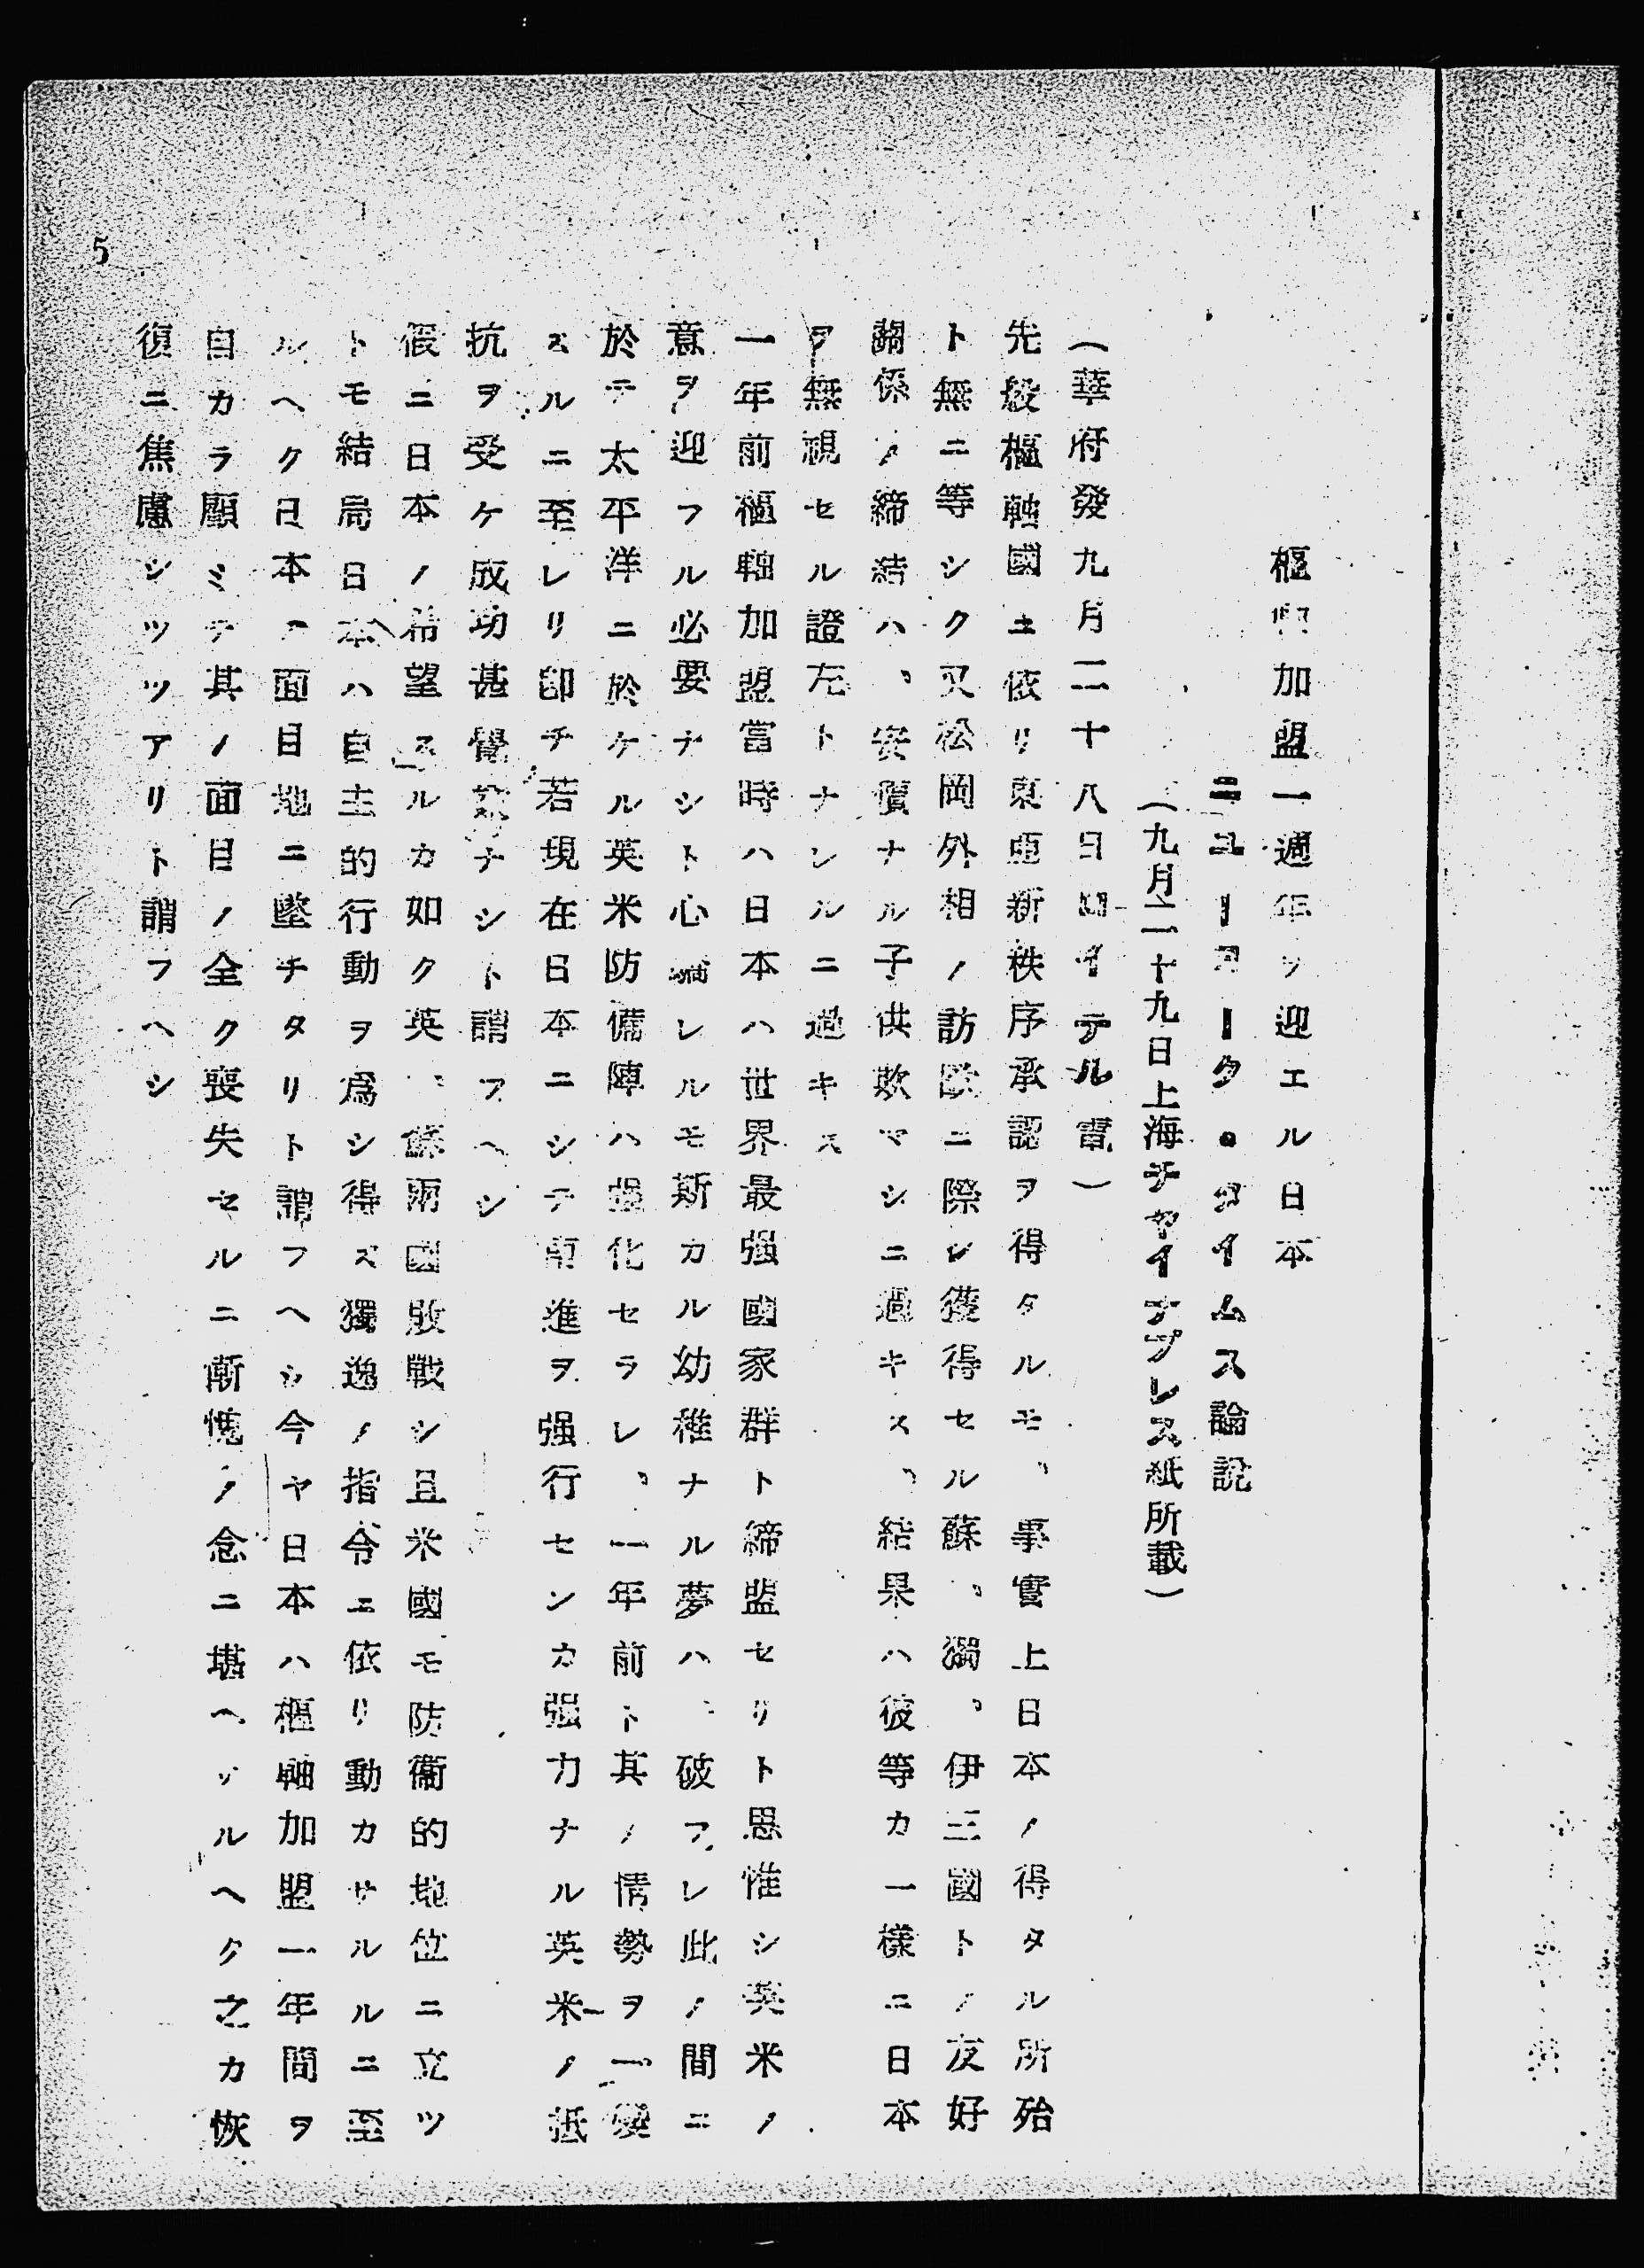 樞軸加盟一週年ヲ迎エル日本
ニユーヨーク・タイムス論說
(九月二十九日上海チヤイナプレス紙所載)
(華府發九月二十八日ロイテル電)
先般樞軸國ニ依リ東亞新秩序承認ヲ得タルモ、事實上日本ノ得タル所殆
ト無ニ等シク又松岡外相ノ訪歐ニ際シ獲得セル蘇、獨、伊三國トノ友好
關係ノ締結ハ、安價ナル子供欺マシニ過キス、結果ハ彼等カ一樣ニ日本
ヲ無視セル證左トナンルニ過キス
一年前樞軸加盟當時ハ日本ハ世界最强國家群ト締盟セリト思惟シ英米ノ
意ヲ迎フル必要ナシト心竊レルモ斯カル幼稚ナル夢ハ、破フレ此ノ間ニ
於テ太平洋ニ於ケル英米防備陣ハ强化セラレ、一年前ト其ノ情勢ヲ一變
スルニ至レリ卽チ若現在日本ニシテ南進ヲ强行センカ强力ナル英米ノ抵
抗ヲ受ケ成功甚覺束ナシト謂フヘシ
假ニ日本ノ希望スルカ如ク英、蘇兩國敗戰シ且米國モ防衞的地位ニ立ツ
トモ結局日本ハ自主的行動ヲ爲シ得ズ獨逸ノ指令ニ依リ動カサルルニ至
ルヘク日本ノ面目地ニ墜チタリト謂フヘシ今ヤ日本ハ樞軸加盟一年間ヲ
自カラ顧ミテ其ノ面目ノ全ク喪失セルニ慚愧ノ念ニ堪ヘザルヘク之カ恢
復ニ焦慮シツツアリト謂フヘシ
5